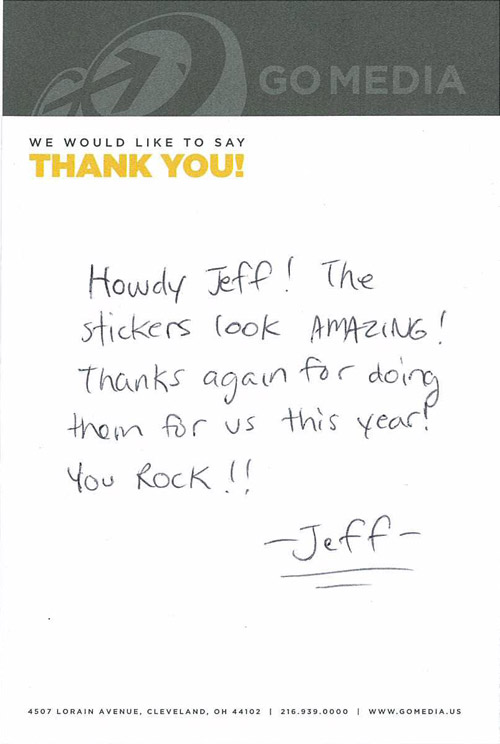 GO MEDIA
WE WOULD LIKE TO SAY
THANK YOU!
Howdy Jeff! The
stickers look AMAZING!
Thanks again for doing
them for us this year!
You Rock!!
-Jeff-
4507 LORAIN AVENUE, CLEVELAND, OH 44102 | 216.939.0000 | WWW.GOMEDIA.US